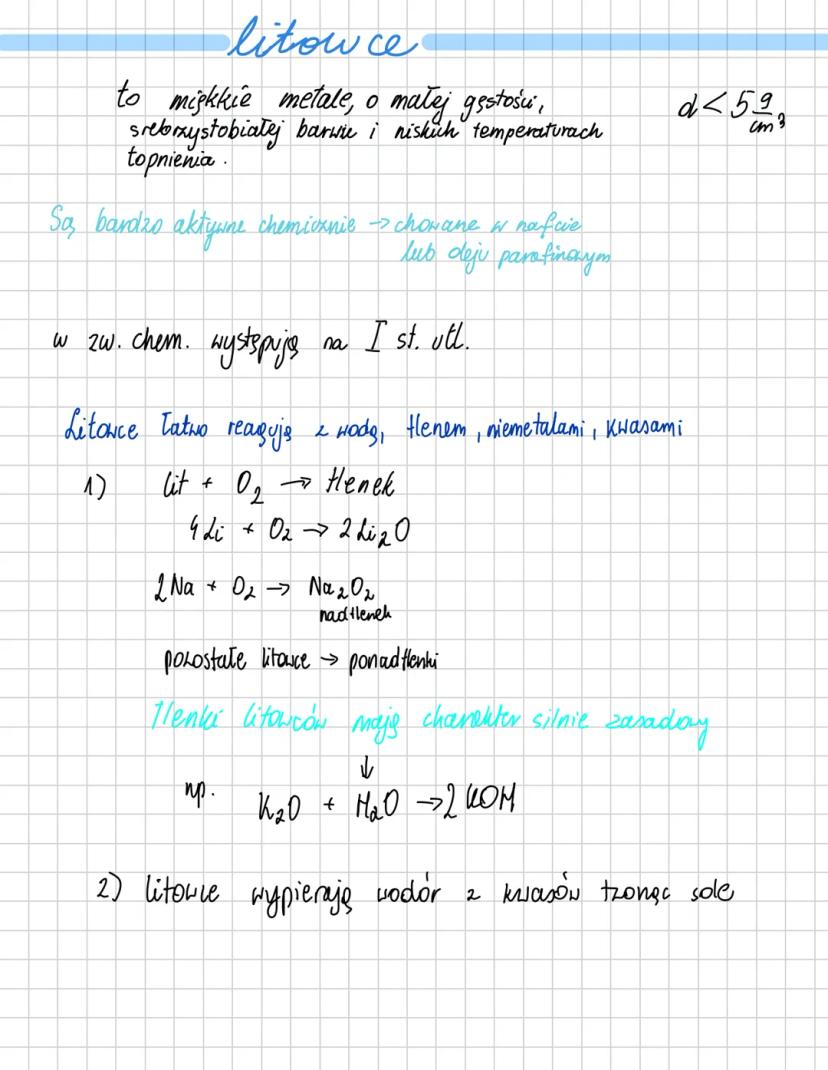 litowce
to miękkie metale, o małej gęstości, d < 5 g/cm³
srebrzystobiałej barwie i niskich temperaturach
topnienia.
Są bardzo aktywne chemicznie → chowane w nafcie
lub oleju parafinowym
w zw. chem. występują na I st. utl.
Litowce łatwo reagują z wodą, tlenem, niemetalami, kwasami
1) lit + O₂ → tlenek
4Li + O₂ → 2Li₂O
2Na + O₂ → Na₂O₂
nadtlenek
pozostałe litowce → ponadtlenki
Tlenki litowców mają charakter silnie zasadowy
↓
np. K₂O + H₂O → 2KOH
2) litowce wypierają wodór z kwasów tworząc sole